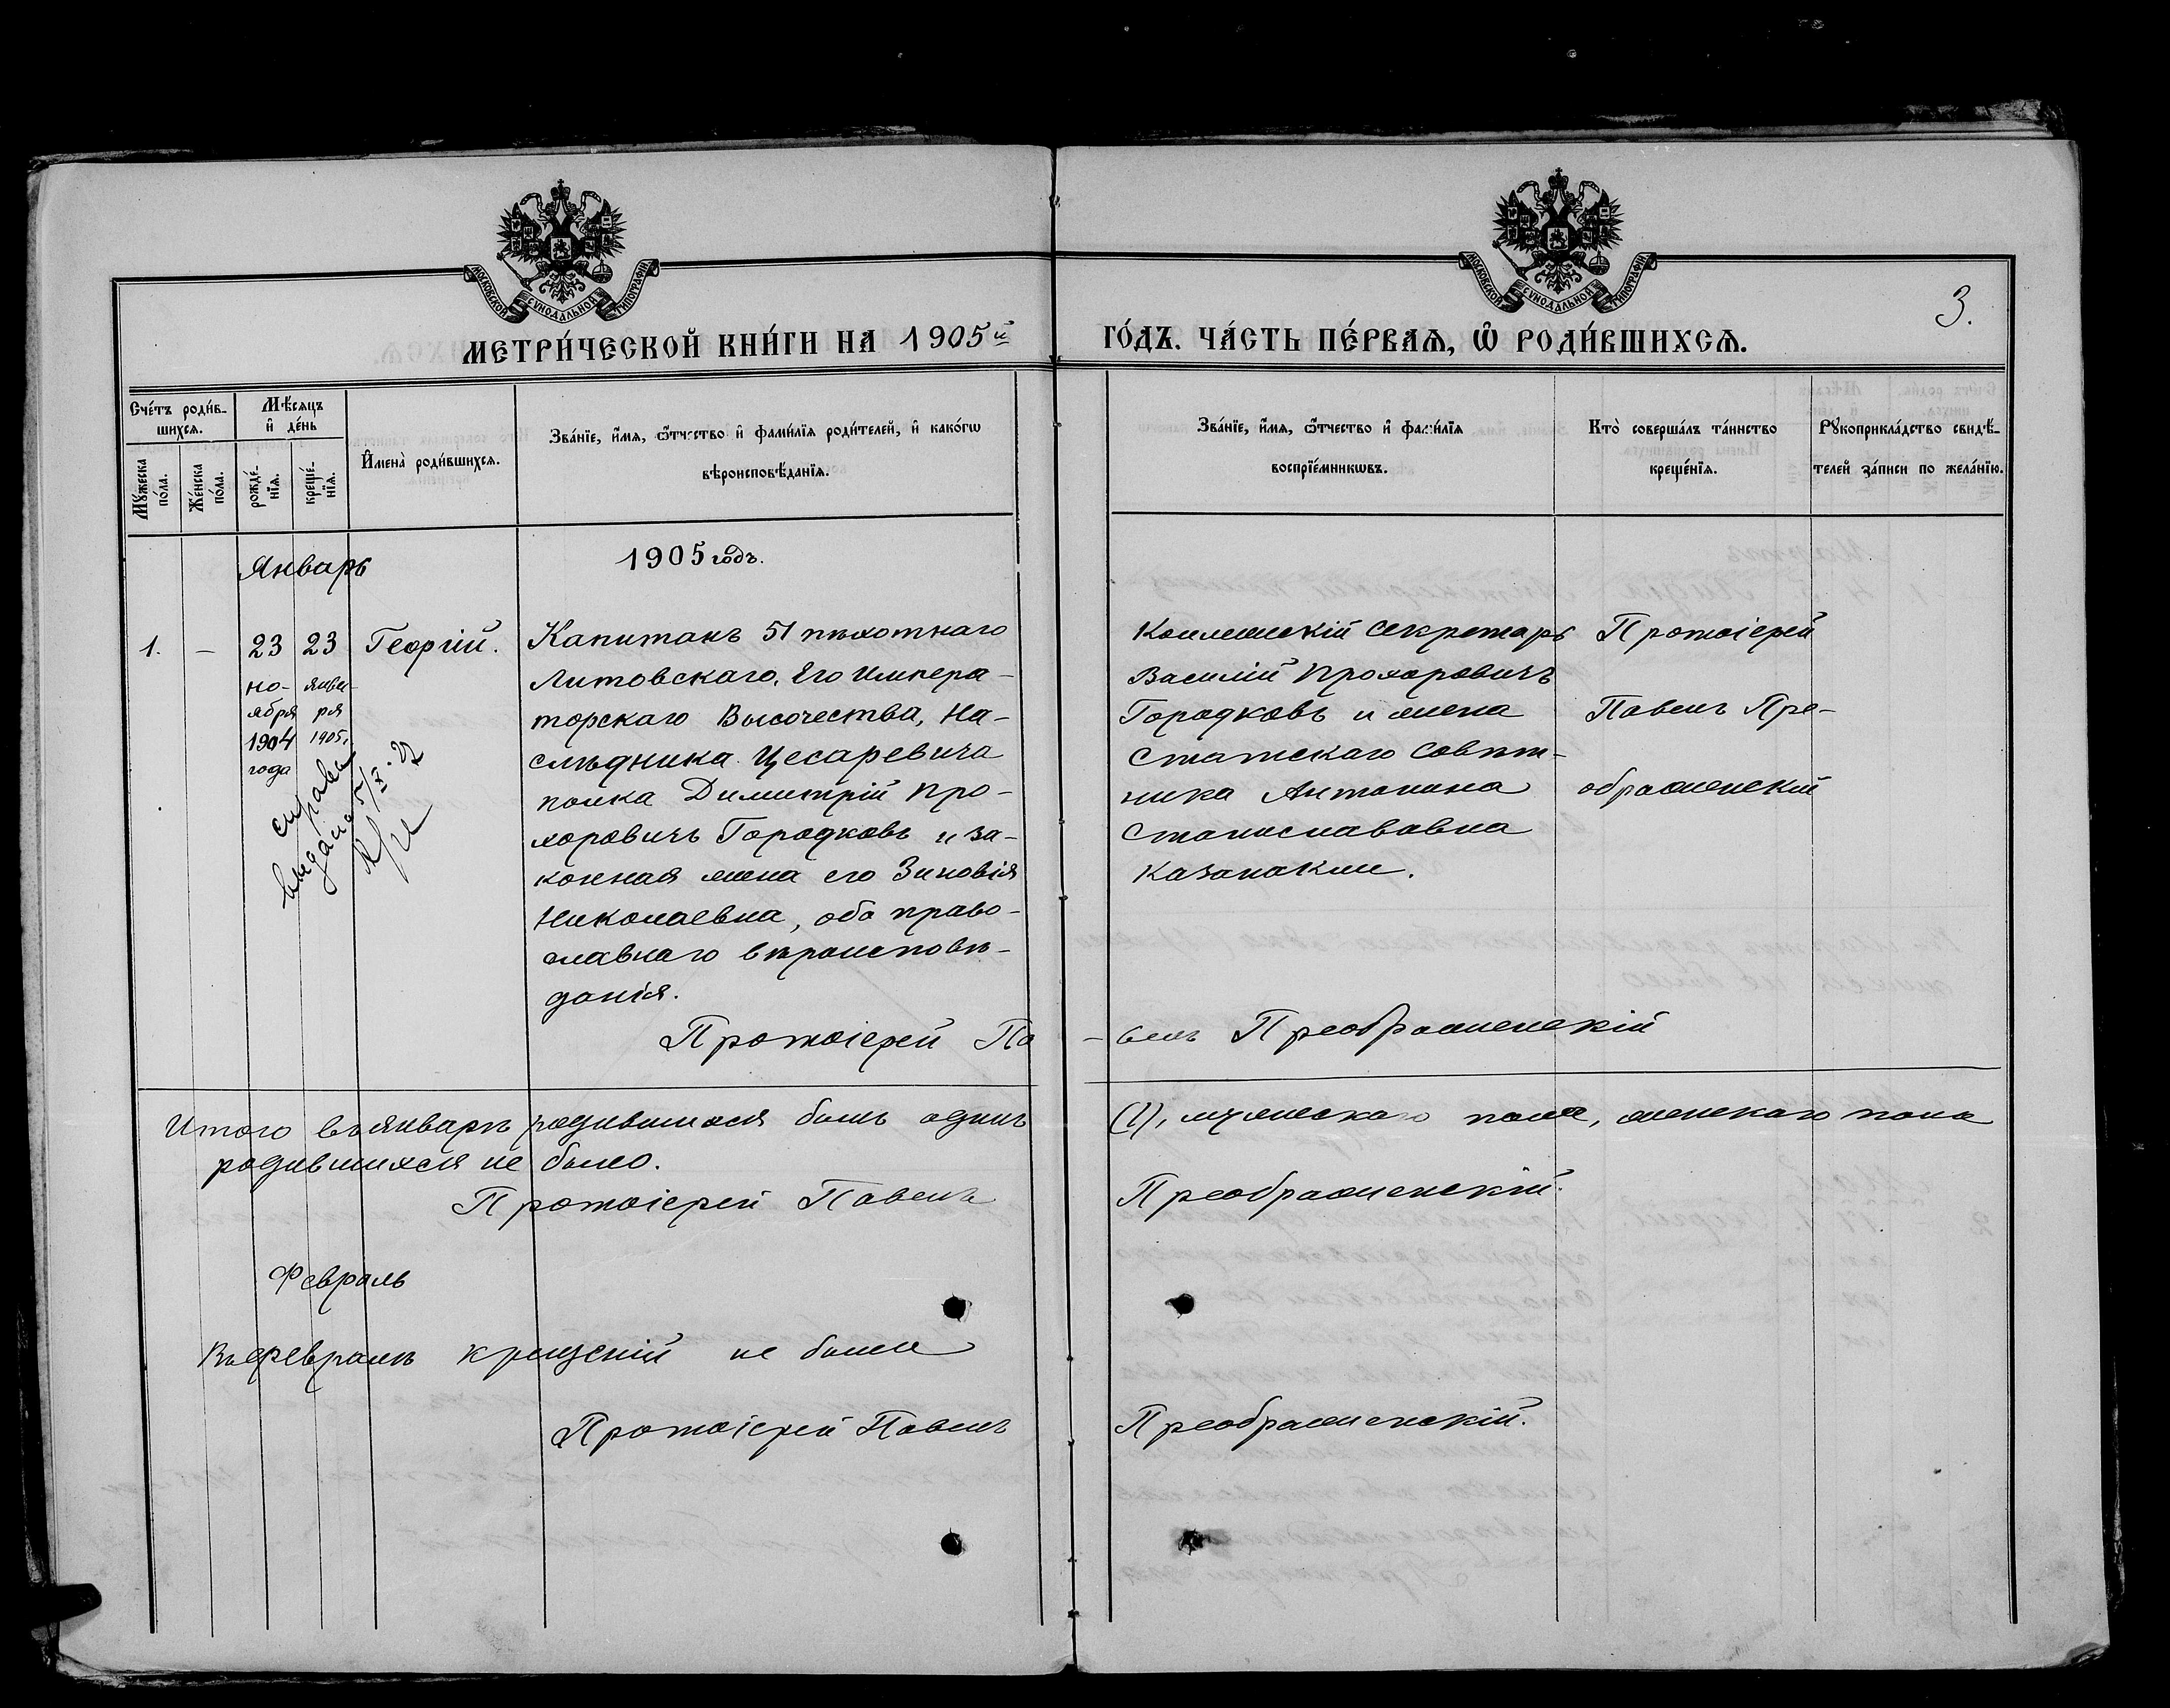 МОСКОВСКОЙ СѴНОДАЛЬНОЙ ТИПОГРАФІИ
МОСКОВСКОЙ СѴНОДАЛЬНОЙ ТИПОГРАФІИ
3.
МЕТРИ́ЧЕСКОЙ КНИ́ГИ НА 1905й ГО́ДЪ. ЧА́СТЬ ПЕ́РВАѦ, Ѡ҆ РОДИ́ВШИХСѦ.
Сче́тъ роди́в-
шихсѧ.
Мꙋ́жеска
по́ла.
Же́нска
по́ла.
Мѣ́сѧцъ
и҆ де́нь
рожде́-
нїѧ.
креще́-
нїѧ.
И҆мена̀ роди́вшихсѧ.
Зва́нїе, и҆́мѧ, ѻ҆́тчество и҆ фами́лїѧ роди́телей, и҆ како́гѡ
вѣроисповѣ́данїѧ.
Зва́нїе, и҆́мѧ, ѻ҆́тчество и҆ фами́лїѧ
воспрїе́мникѡвъ.
Кто̀ соверша́лъ та́инство
креще́нїѧ.
Рꙋкоприкла́дство свидѣ́-
телей за́писи по жела́нїю.
Январь
1905 годъ.
1. – 23 23 Георгій.
но-
ября
1904
года
янва-
ря
1905г.
Капитанъ 51 пѣхотнаго
Литовскаго, Его Импера-
торскаго Высочества, На-
слѣдника Цесаревича
полка Димитрій Про-
хоровичъ Городковъ и за-
конная жена его Зиновія
Николаевна, оба право-
славнаго вѣроисповѣ-
данія.
Коллежскій Секретарь
Василій Прохоровичъ
Городковъ и жена
Статскаго Совѣт-
ника Антонина
Станиславовна
Казанакли.
Протоіерей
Павелъ Пре-
ображенскій
справка
выдана 5/X
Протоіерей Па-велъ Преображенскій
Итого въ январѣ родившихся былъ одинъ (1), мужескаго пола, женскаго пола
родившихся не было.
Протоіерей Павелъ Преображенскій.
Февраль
Въ февралѣ крещеній не было
Протоіерей Павелъ Преображенскій.